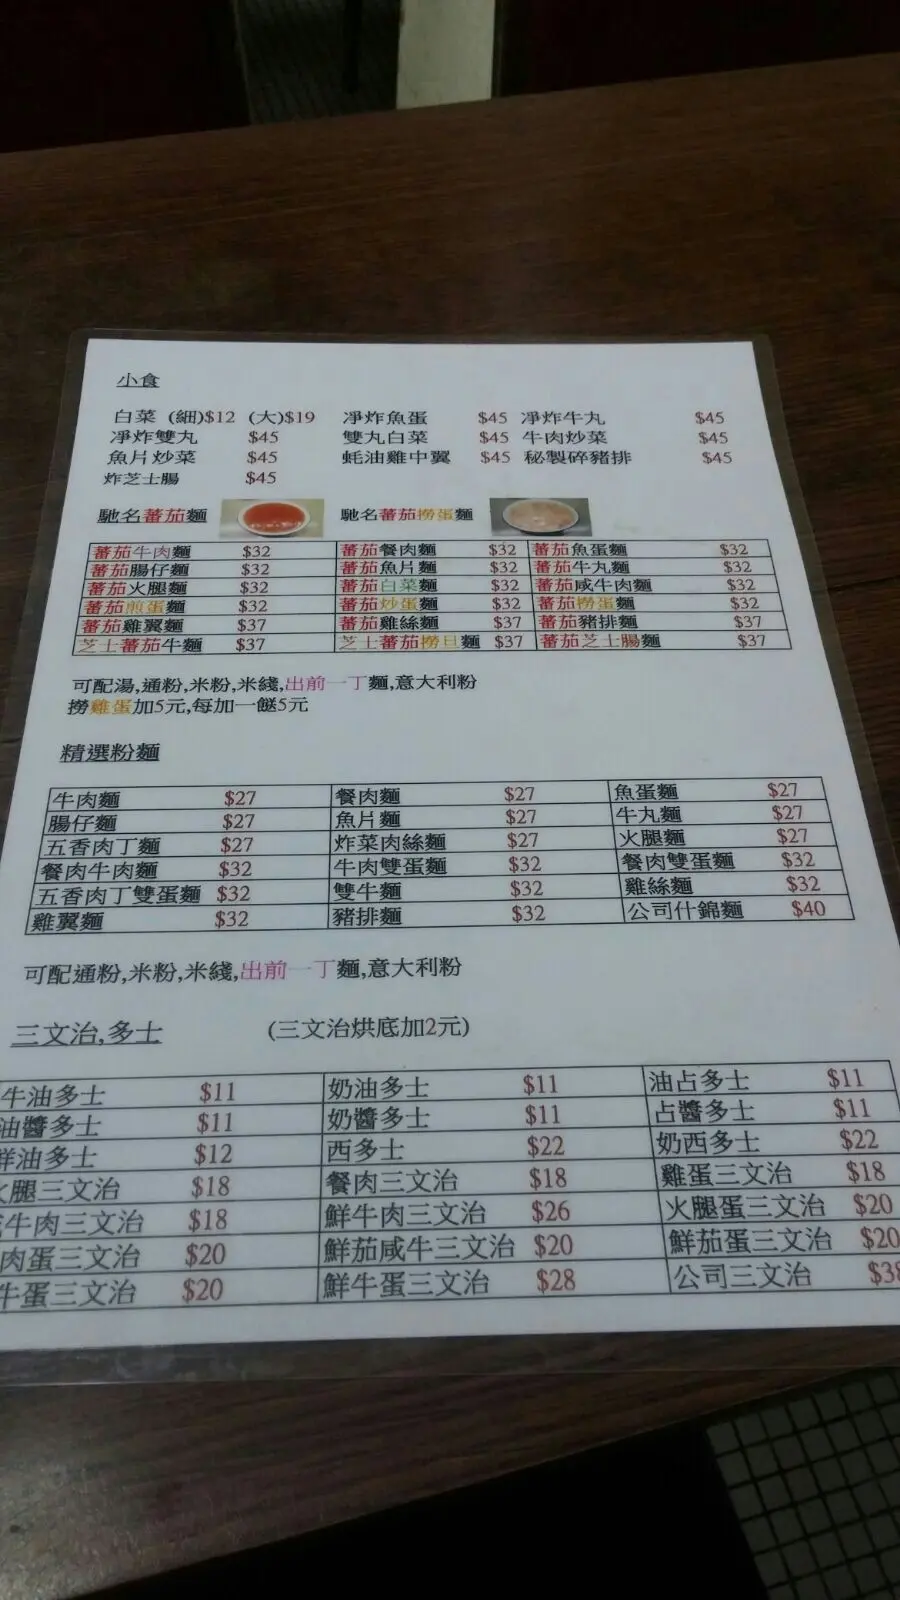 小食
白菜 (細)$12 (大)$19 凈炸魚蛋 $45 凈炸牛丸 $45
凈炸雙丸 $45 雙丸白菜 $45 牛肉炒菜 $45
魚片炒菜 $45 蚝油雞中翼 $45 秘製碎豬排 $45
炸芝士腸 $45
馳名蕃茄麵 馳名蕃茄撈蛋麵
蕃茄牛肉麵 $32 蕃茄餐肉麵 $32 蕃茄魚蛋麵 $32
蕃茄腸仔麵 $32 蕃茄魚片麵 $32 蕃茄牛丸麵 $32
蕃茄火腿麵 $32 蕃茄白菜麵 $32 蕃茄咸牛肉麵 $32
蕃茄煎蛋麵 $32 蕃茄炒蛋麵 $32 蕃茄撈蛋麵 $32
蕃茄雞翼麵 $37 蕃茄雞絲麵 $37 蕃茄豬排麵 $37
芝士蕃茄牛麵 $37 芝士蕃茄撈旦麵 $37 蕃茄芝士腸麵 $37
可配湯,通粉,米粉,米綫,出前一丁麵,意大利粉
撈雞蛋加5元,每加一餸5元
精選粉麵
牛肉麵 $27 餐肉麵 $27 魚蛋麵 $27
腸仔麵 $27 魚片麵 $27 牛丸麵 $27
五香肉丁麵 $27 炸菜肉絲麵 $27 火腿麵 $27
餐肉牛肉麵 $32 牛肉雙蛋麵 $32 餐肉雙蛋麵 $32
五香肉丁雙蛋麵 $32 雙牛麵 $32 雞絲麵 $32
雞翼麵 $32 豬排麵 $32 公司什錦麵 $40
可配通粉,米粉,米綫,出前一丁麵,意大利粉
三文治,多士 (三文治烘底加2元)
牛油多士 $11 奶油多士 $11 油占多士 $11
油醬多士 $11 奶醬多士 $11 占醬多士 $11
鮮油多士 $12 西多士 $22 奶西多士 $22
火腿三文治 $18 餐肉三文治 $18 雞蛋三文治 $18
牛肉三文治 $18 鮮牛肉三文治 $26 火腿蛋三文治 $20
肉蛋三文治 $20 鮮茄咸牛三文治 $20 鮮茄蛋三文治 $20
牛蛋三文治 $20 鮮牛蛋三文治 $28 公司三文治